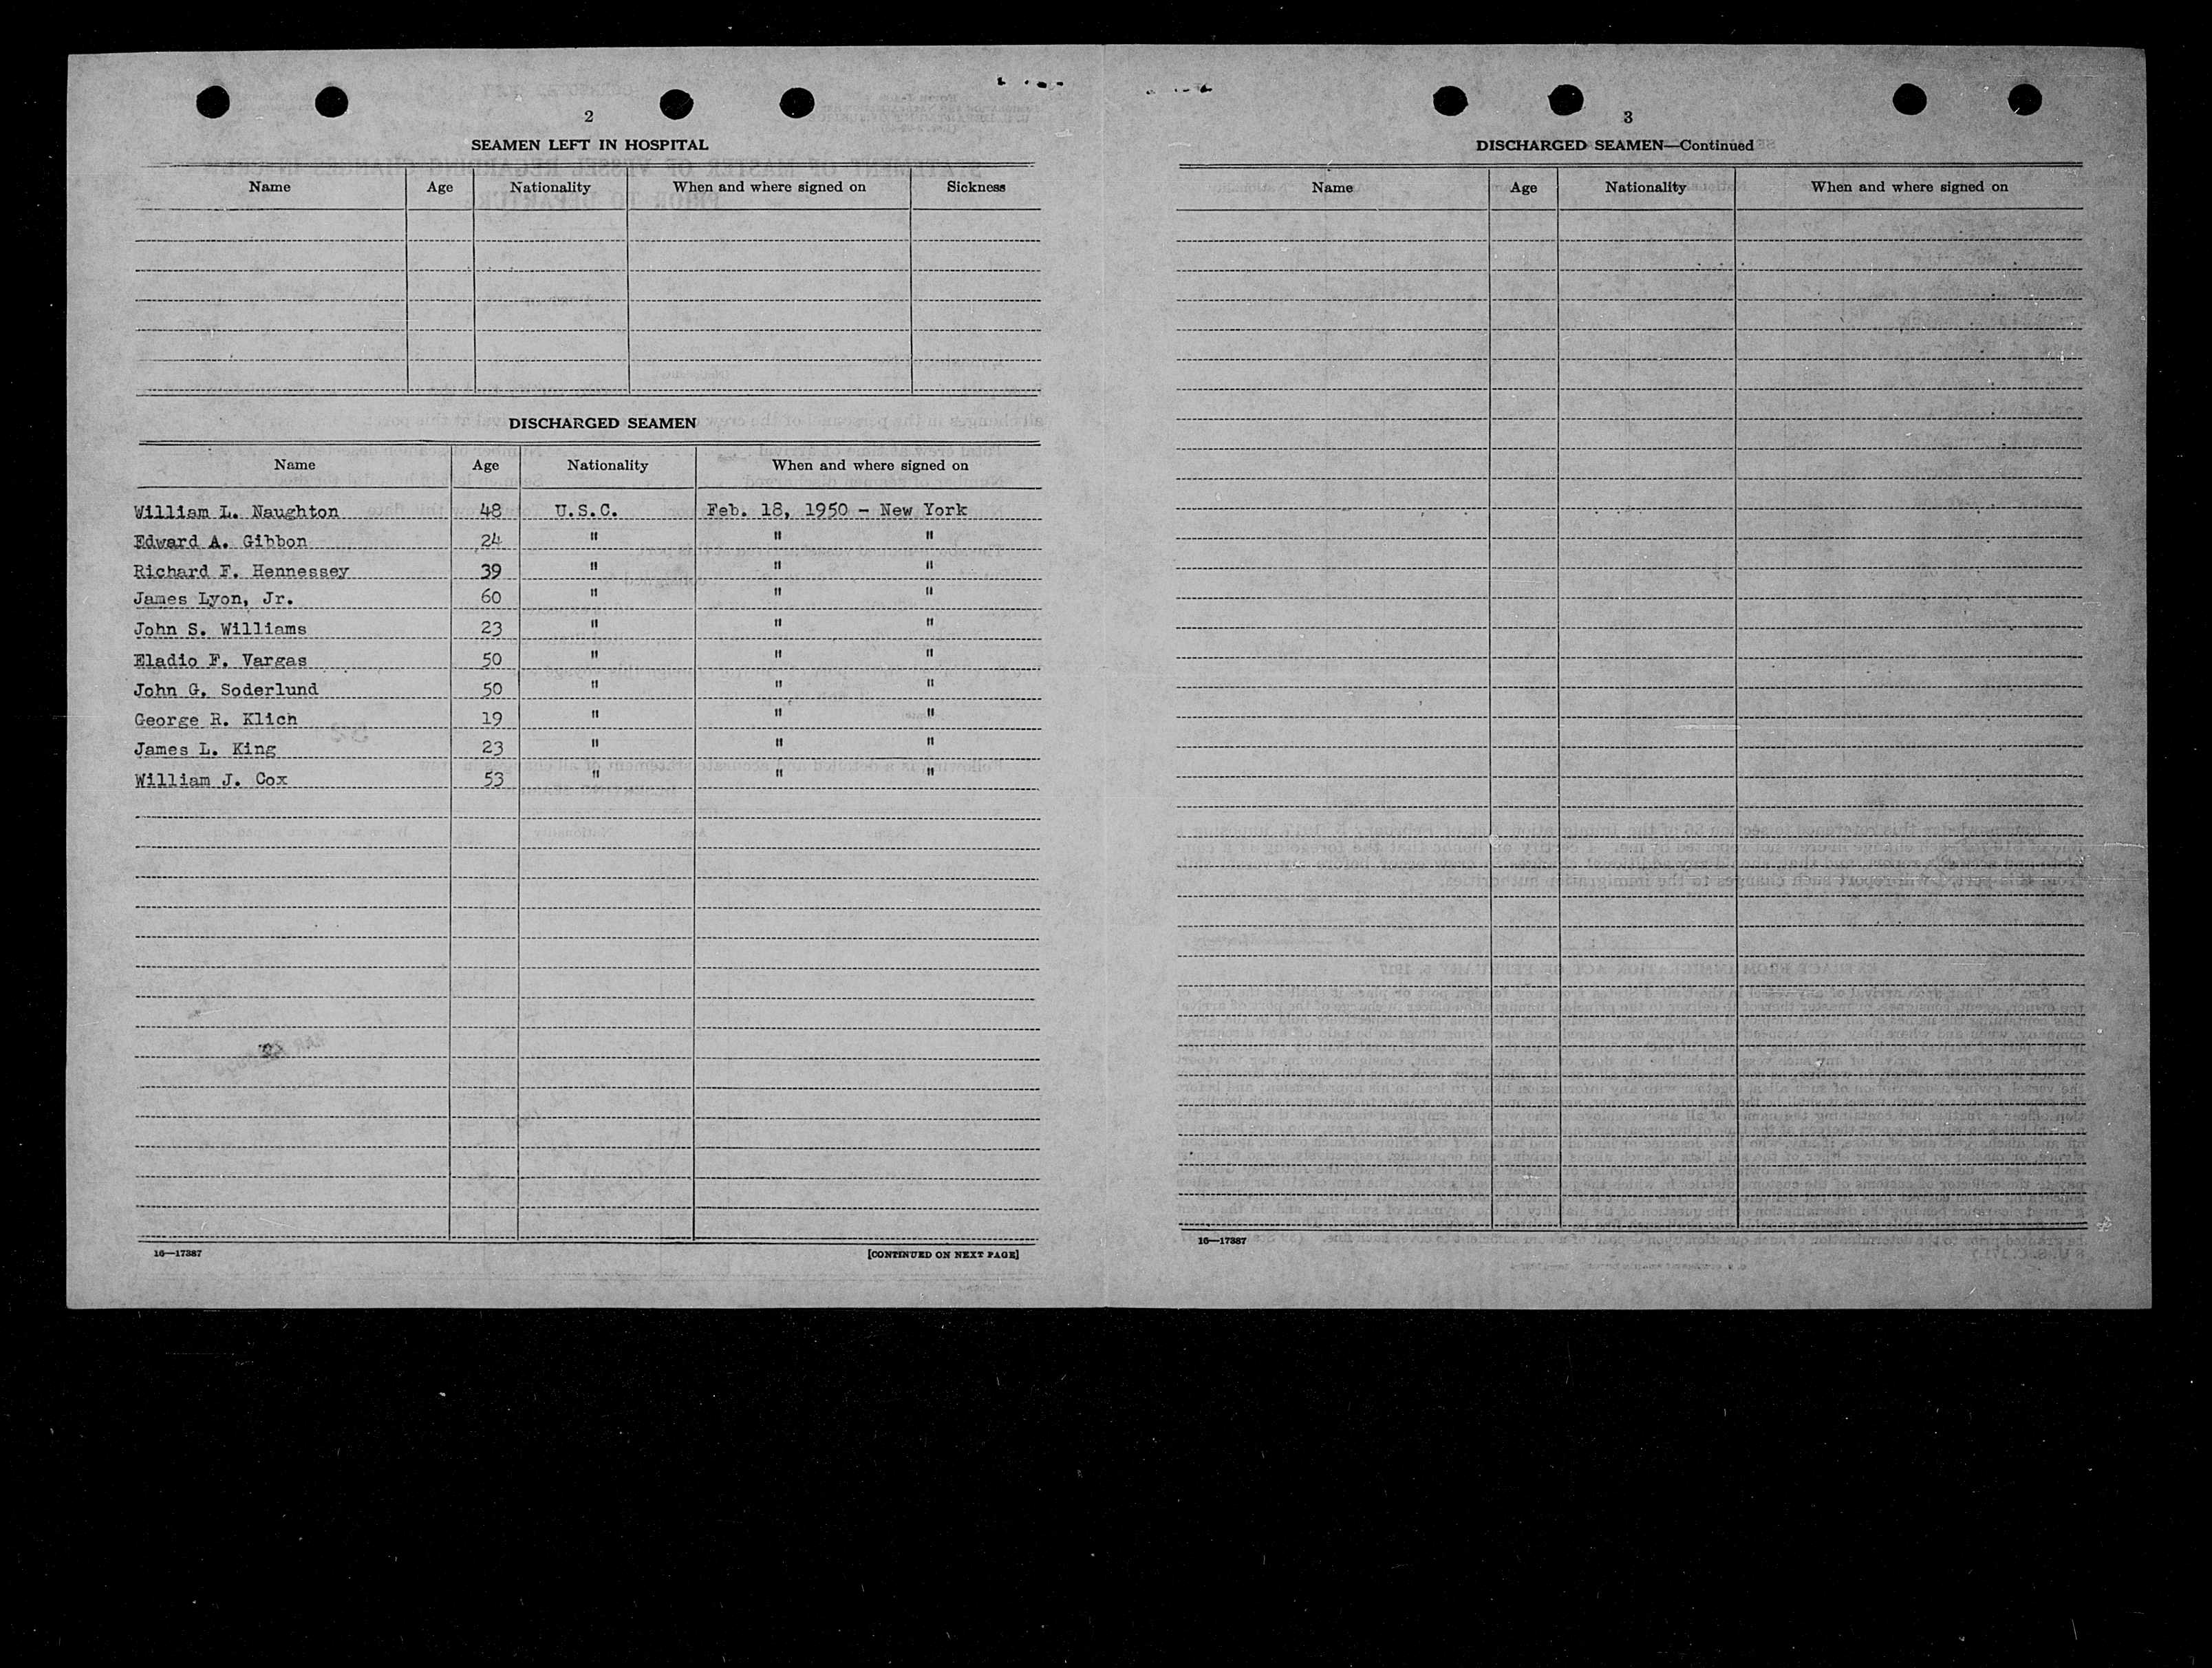 2
SEAMEN LEFT IN HOSPITAL
Name Age Nationality When and where signed on Sickness
DISCHARGED SEAMEN
Name Age Nationality When and where signed on
William L. Naughton 48 U.S.C. Feb. 18, 1950 - New York
Edward A. Gibbon 24 " " "
Richard F. Hennessey 39 " " "
James Lyon, Jr. 60 " " "
John S. Williams 23 " " "
Eladio F. Vargas 50 " " "
John G. Soderlund 50 " " "
George R. Klich 19 " " "
James L. King 23 " " "
William J. Cox 53 " " "
16—17387 [CONTINUED ON NEXT PAGE]
3
DISCHARGED SEAMEN—Continued
Name Age Nationality When and where signed on
16—17387